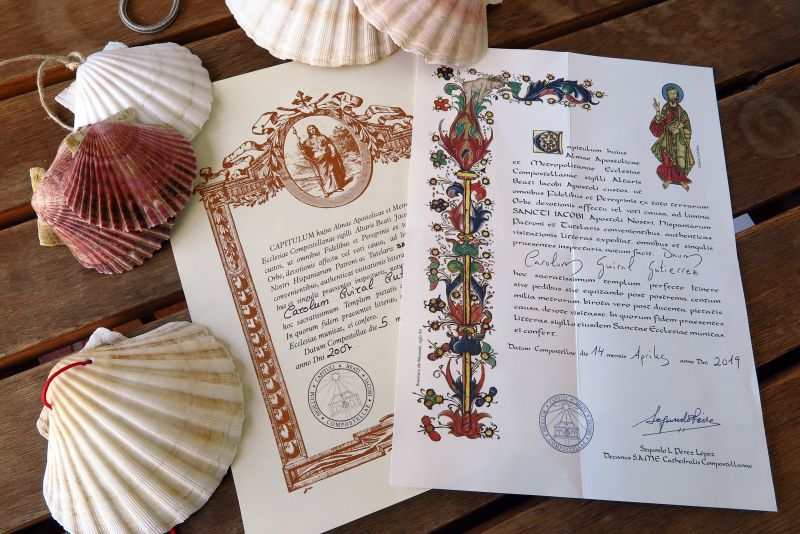 CAPITULUM hujus Almae Apostolicae et Metro
Ecclesiae Compostellanae, sigilli Altaris Beati Jaco
custos, ut omnibus Fidelibus et Pere
Orbe, devotionis affectu vel voti causa, ad li
Nostri Hispaniarum Patroni ac Tutelaris SA
convenientibus, authenticas visitationis litteras
bus et singulis praesentes inspecturis, not
Carolum Guiral Gut
hoc sacratissimum Templum pietatis c
In quorum fidem praesentes litteras,
Ecclesiae munitas, ei confero.
Datum Compostellae die 5 m
anno Dni 2007
SIGILLUM CAPITULI BEATI JACOBI COMPOSTELLAE
Capitulum huius
Almae Apostolicae
et Metropolitanae Ecclesiae
Compostellanae sigilli Altaris
Beati Iacobi Apostoli custos, ut
omnibus Fidelibus et Peregrinis ex toto terrarum
Orbe, devotionis affectu vel voti causa, ad limina
SANCTI IACOBI, Apostoli Nostri, Hispaniarum
Patroni et Tutelaris convenientibus, authenticas
visitationis litteras expediat, omnibus et singulis
praesentes inspecturis, notum facit: Dnum
Carolum Guiral Gutierrez
hoc sacratissimum templum, perfecto Itinere
sive pedibus sive equitando post postrema centum
milia metrorum, birota vero post ducenta, pietatis
causa, devote visitasse. In quorum fidem praesentes
litteras, sigillo eiusdem Sanctae Ecclesiae munitas
ei confert.
Datum Compostellae die 14 mensis Aprilis anno Dni 2019
Segundo L. Pérez López
Decanus S.A.M.E. Cathedralis Compostellanae